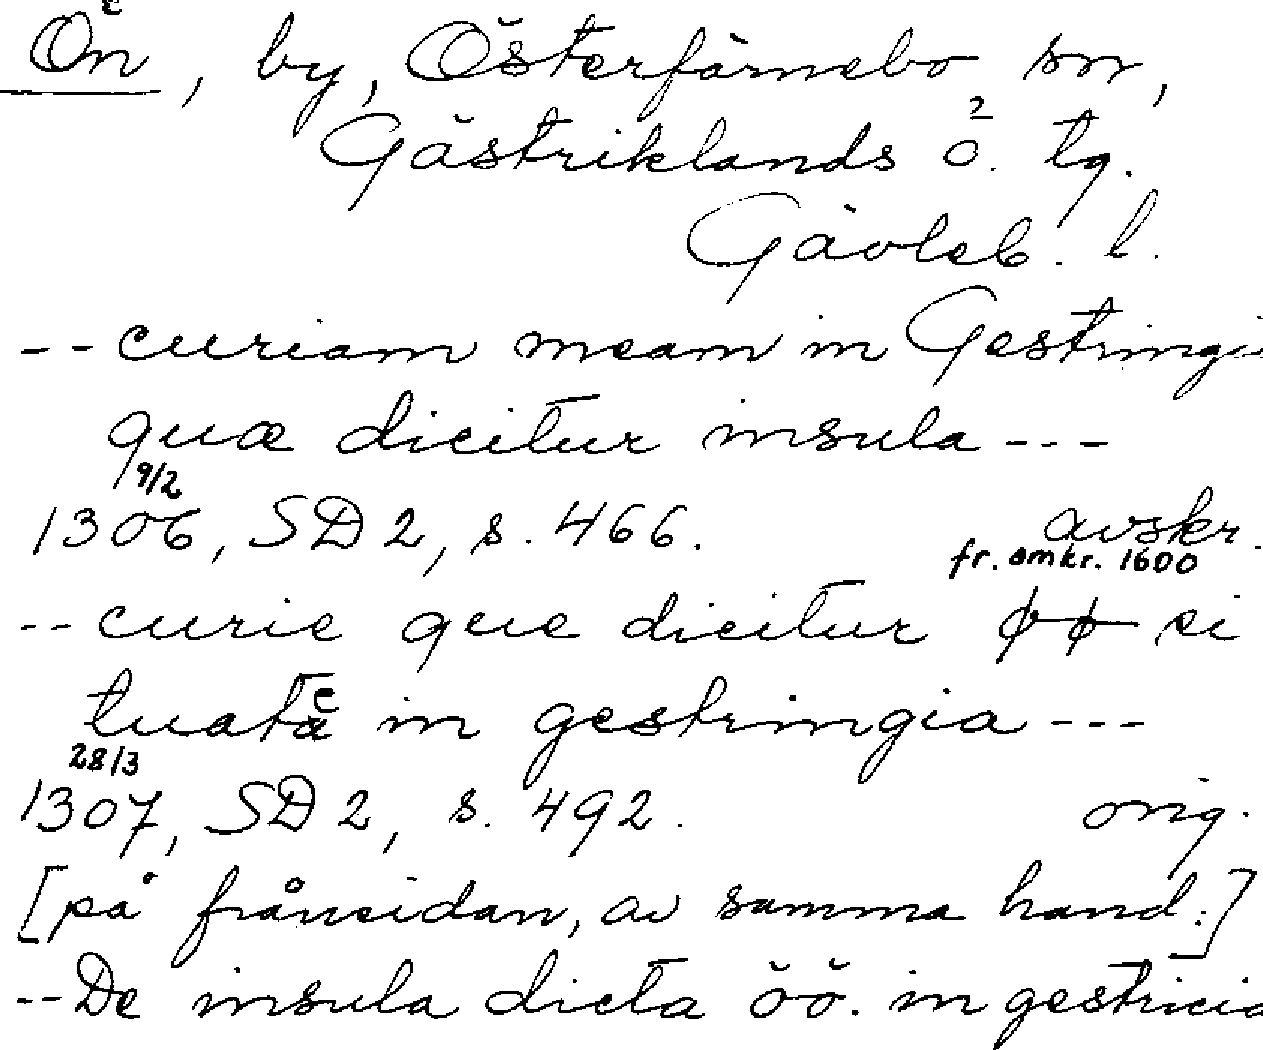 Ön, by, Österfärnebo sn,
Gästriklands ö. tg.
2
Gävleb. l.
-- curiam meam in Gestringi
quæ dicitur insula ---
9/2
1306, SD 2, s. 466. avskr.
fr. omkr. 1600
-- curie que dicitur øø si
tuate in gestringia ---
28/3
1307, SD 2, s. 492. orig.
[på frånsidan, av samma hand:]
-- De insula dicta öö. in gestricia